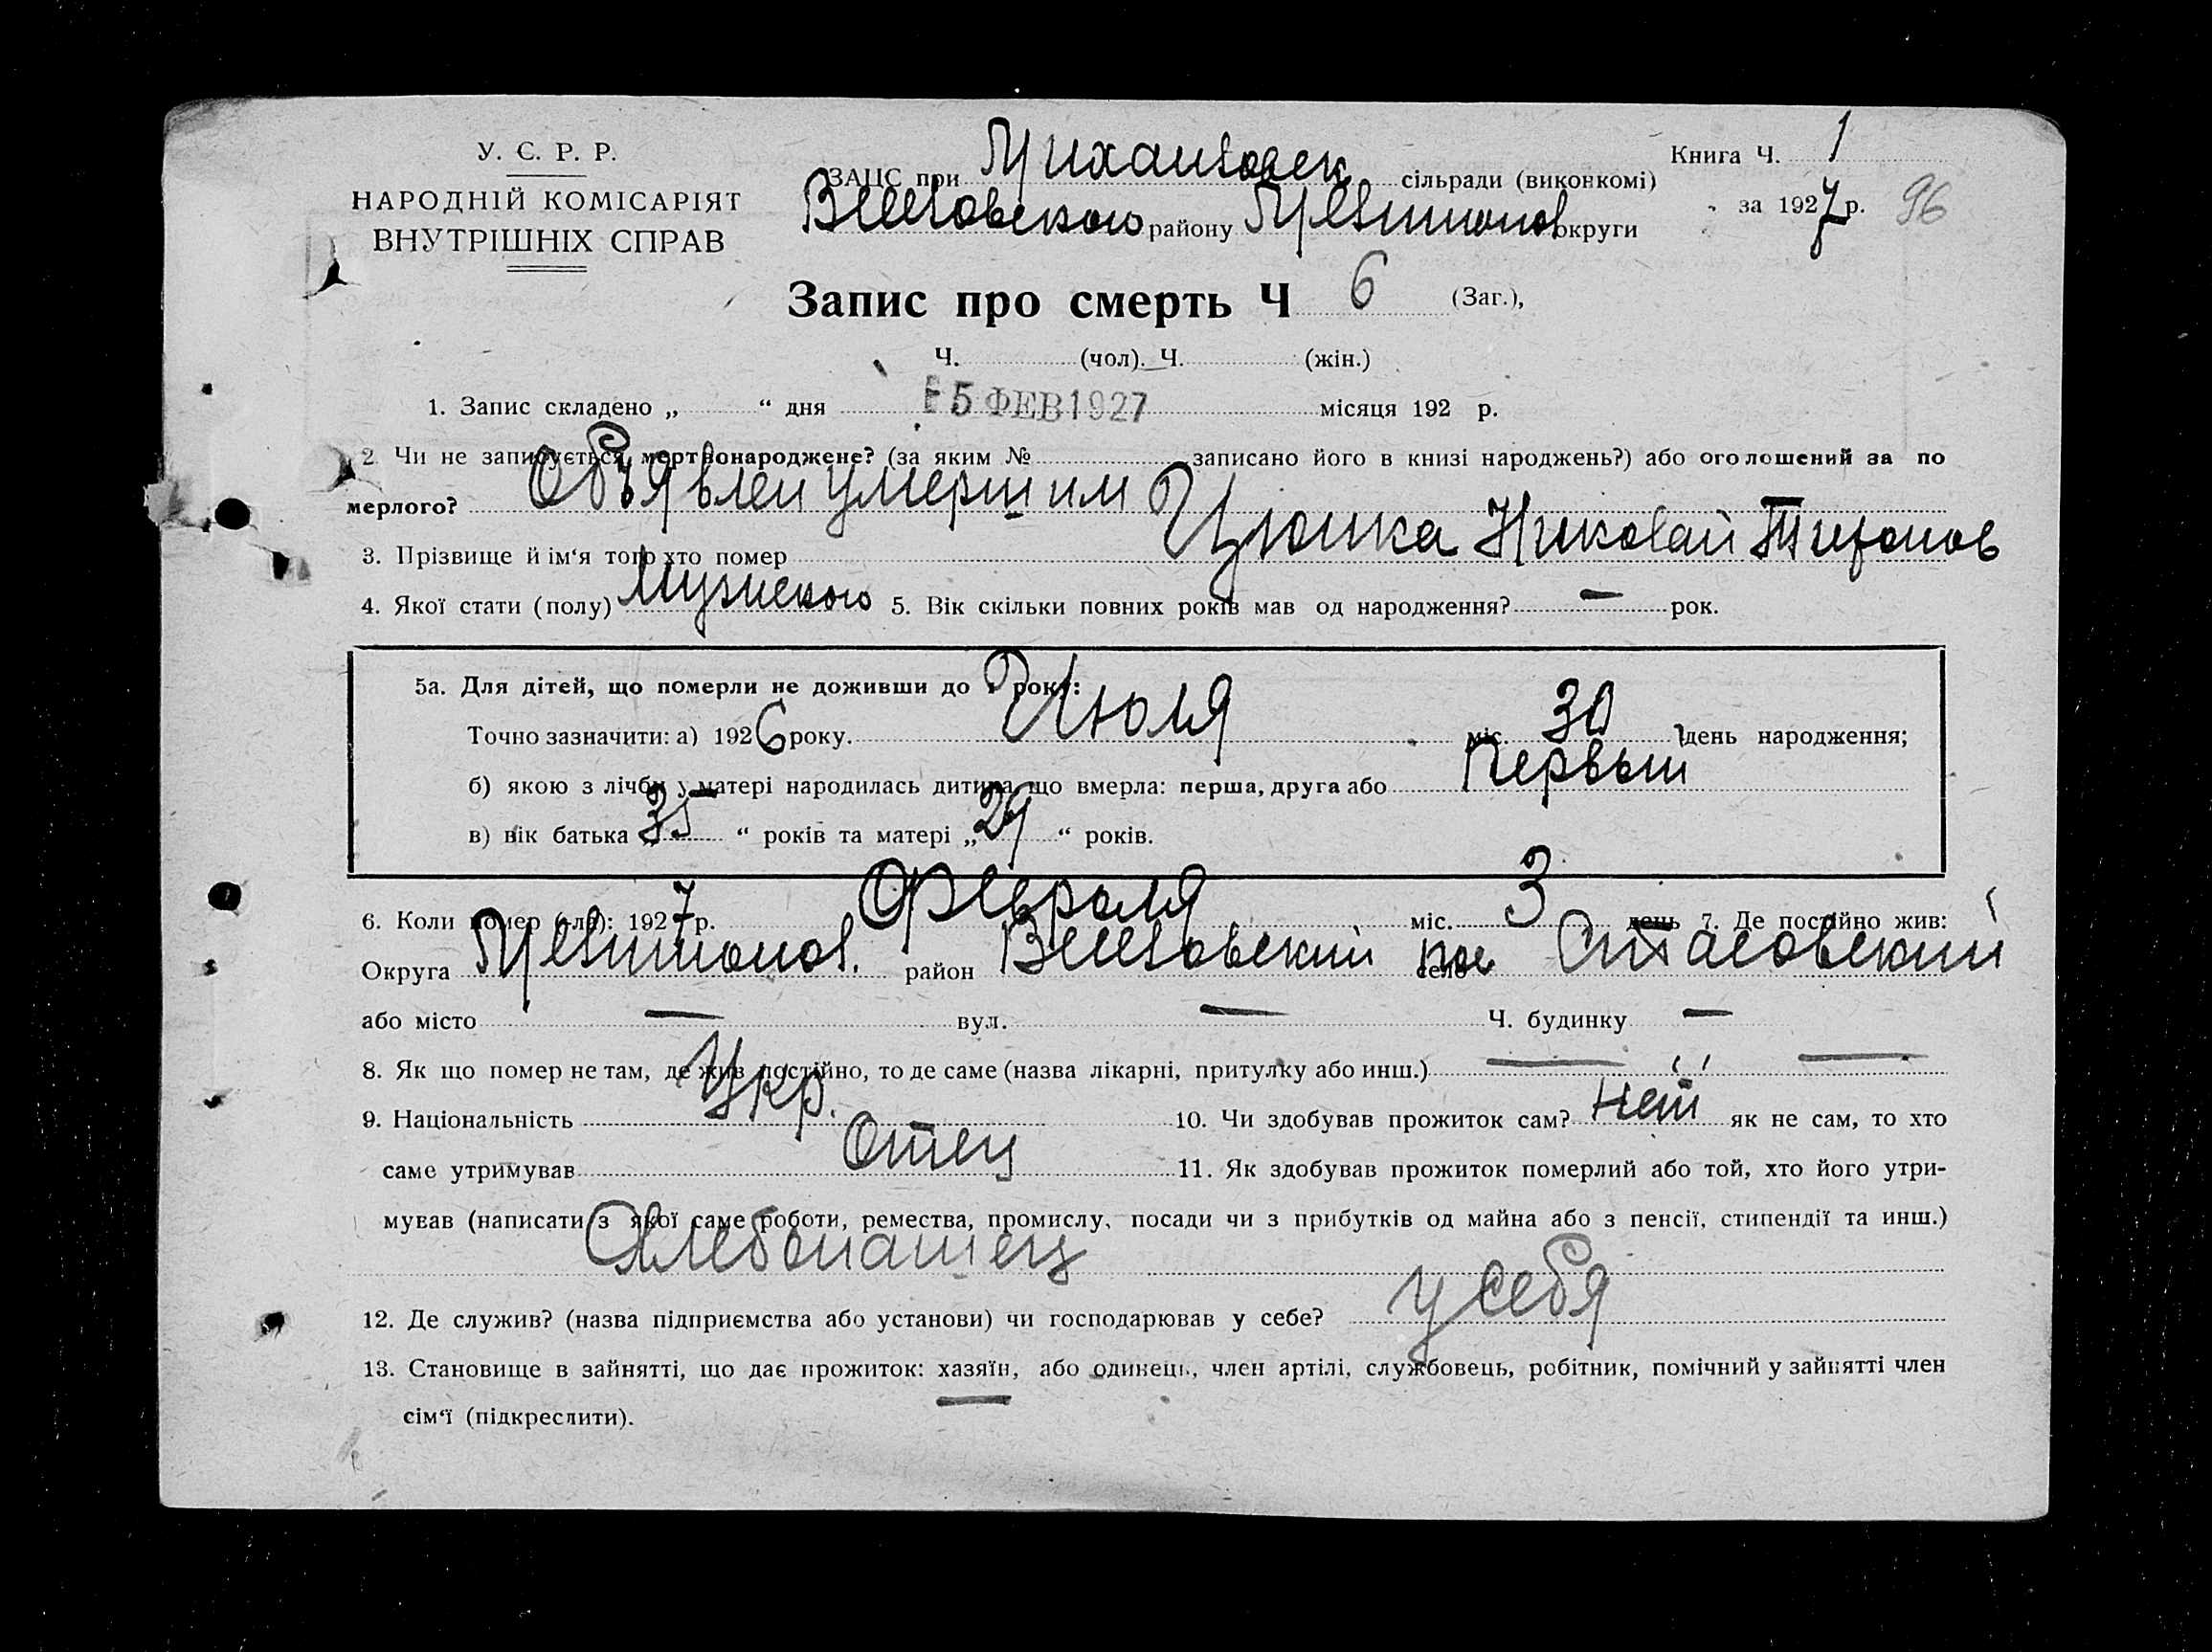 У. С. Р. Р.
НАРОДНІЙ КОМІСАРІЯТ
ВНУТРІШНІХ СПРАВ
ЗАЦС при Михайловск сільради (виконкомі)
Веселовского району Мелитопол округи
Книга Ч. 1
за 1927 р. 96
Запис про смерть Ч 6 (Заг.),
Ч. (чол). Ч. (жін.)
1. Запис складено „ “ дня 5 ФЕВ 1927 місяця 192 р.
2 Чи не записується мертвонароджене? (за яким № записано його в книзі народжень?) або оголошений за по
мерлого? Объявлен умершим
3. Прізвище й ім‘я того хто помер Цюпка Николай Тифонов
4. Якої стати (полу) Мужского 5. Вік скільки повних років мав од народження? — рок.
5а. Для дітей, що померли не доживши до 1 року:
Точно зазначити: а) 1926 року. Июля міс. 30 день народження;
б) якою з лічби у матері народилась дитина, що вмерла: перша, друга або Первым
в) вік батька „ 35 “ років та матері „ 29 “ років.
6. Коли помер (-ла): 1927 р. Февраля міс. 3 день 7. Де постійно жив:
Округа Мелитопол. район Веселовский село пос Стасовский
або місто — вул. — Ч. будинку —
8. Як що помер не там, де жив постійно, то де саме (назва лікарні, притулку або инш.) — " —
9. Національність Укр. 10. Чи здобував прожиток сам? Нет як не сам, то хто
саме утримував Отец 11. Як здобував прожиток померлий або той, хто його утри-
мував (написати з якої саме роботи, ремества, промислу, посади чи з прибутків од майна або з пенсії, стипендії та инш.)
Хлебопашец
12. Де служив? (назва підприємства або установи) чи господарював у себе? у себя
13. Становище в зайнятті, що дає прожиток: хазяїн, або одинець, член артілі, службовець, робітник, помічний у зайнятті член
сім‘ї (підкреслити).